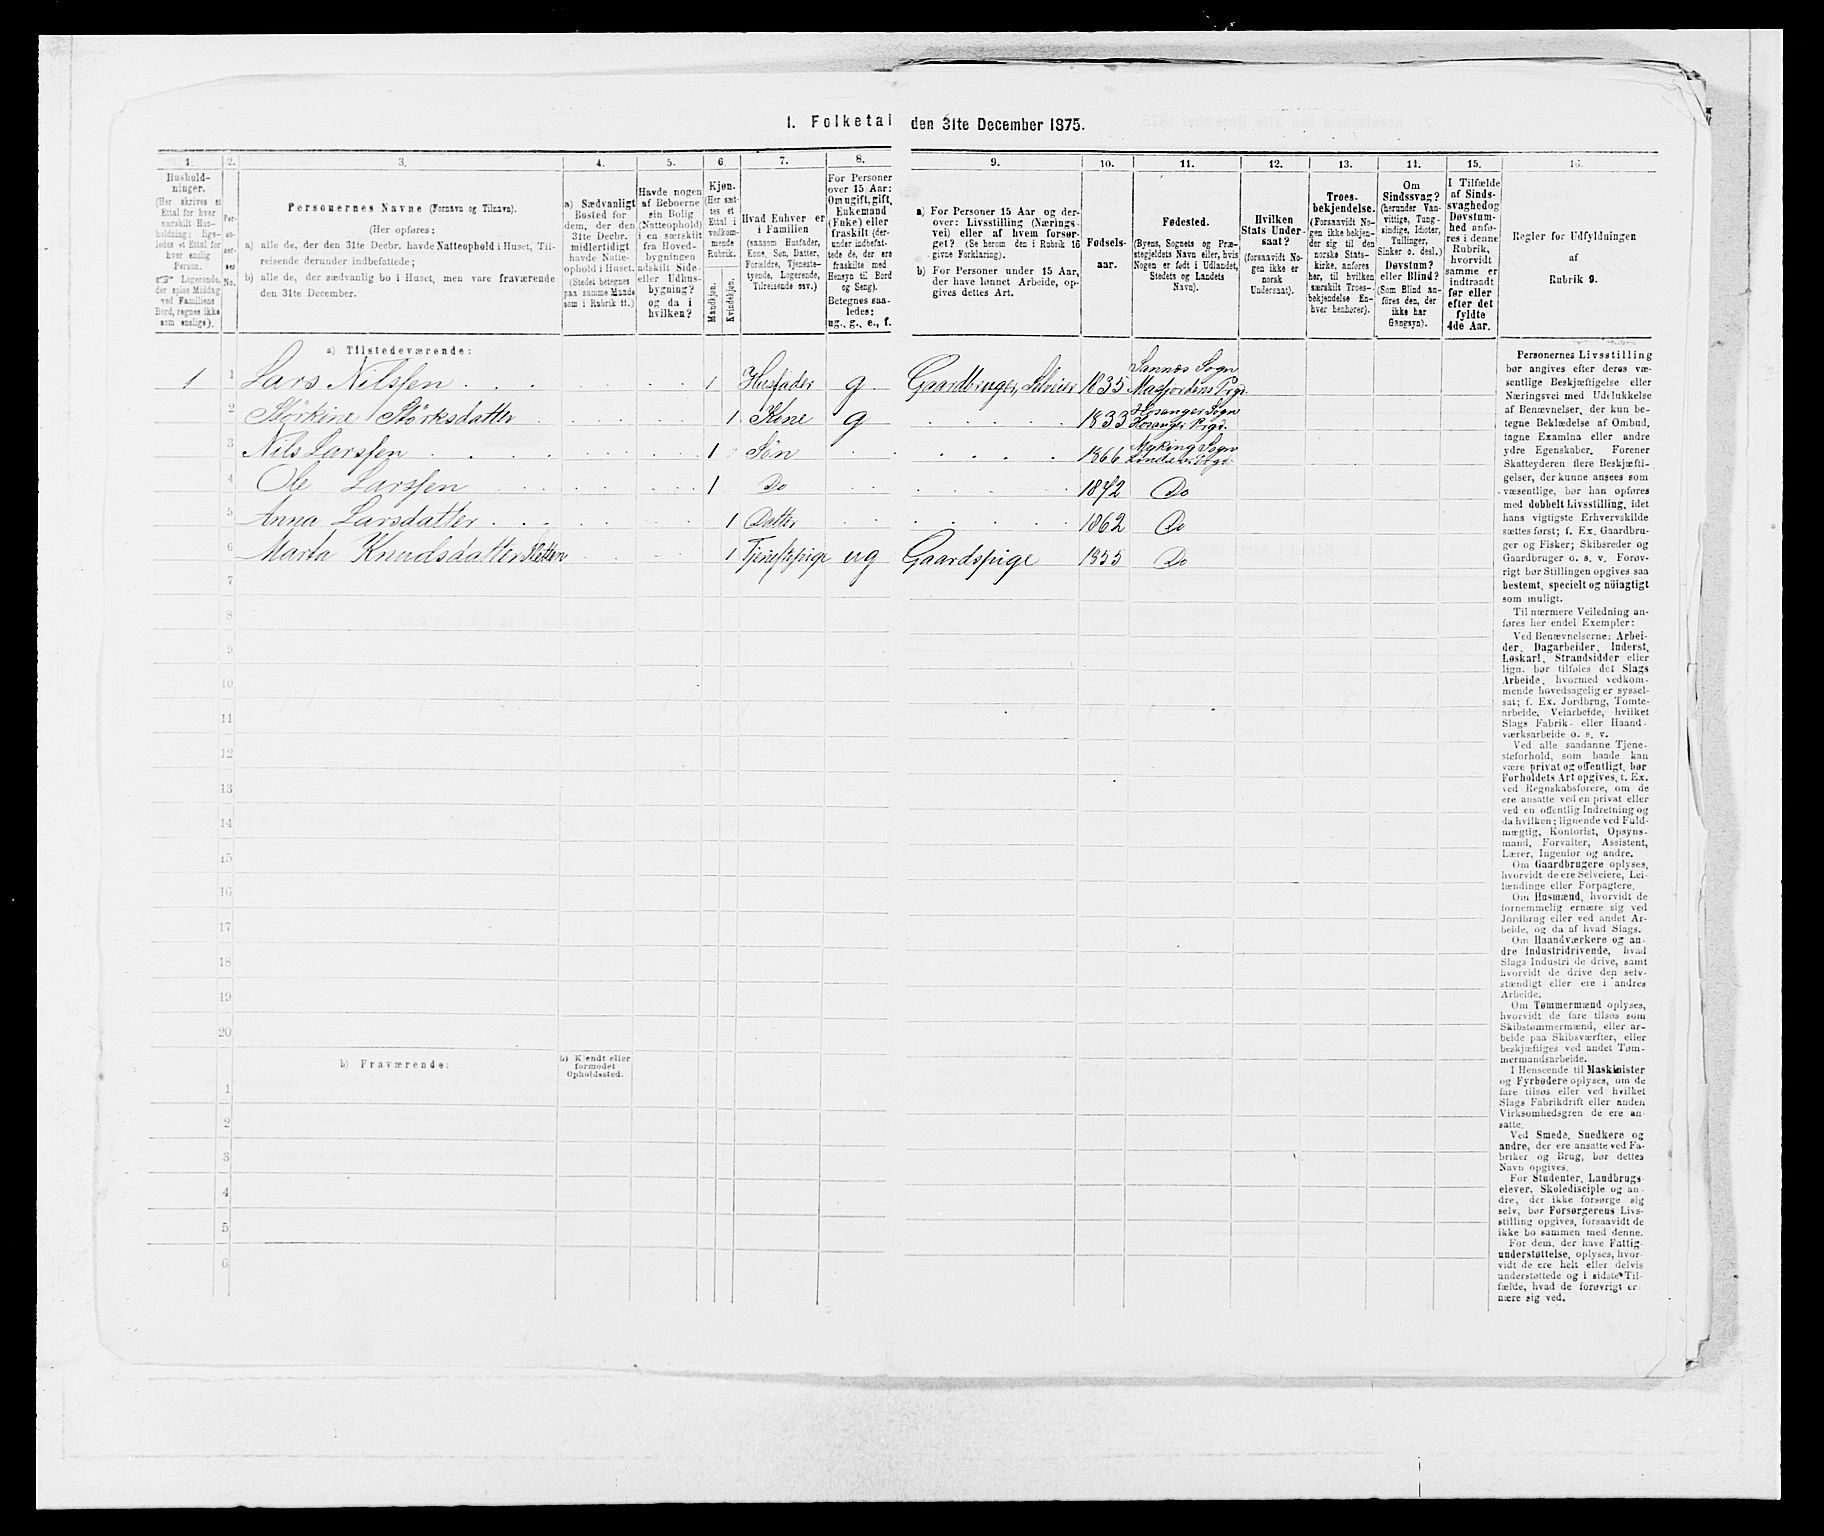 1. Folketal den 31te December 1875.
1.
2.
3.
4.
5.
6.
7.
8.
9.
10.
11.
12.
13.
14.
15.
16.
Hushold-
ninger.
(Her skrives et
Ettal for hver
særskilt Hus-
holdning; lige-
ledes et Ettal for
hver enslig
Person.
☞ Logerende,
der spise Middag
ved Familiens
Bord, regnes ikke
som enslige).
Per-
so-
ner-
nes
No.
Personernes Navne (Fornavn og Tilnavn).
(Her opføres:
a) alle de, der den 31te Decbr. havde Natteophold i Huset, Til-
reisende derunder indbefattede;
b) alle de, der sædvanlig bo i Huset, men vare fraværende
den 31te December.
a) Sædvanligt
Bosted for
dem, der den
31te Decbr.
midlertidigt
havde Natte-
ophold i Huset.
(Stedet betegnes
paa samme Maade
som i Rubrik 11.)
Havde nogen
af Beboerne
sin Bolig
(Natteophold)
i en særskilt
fra Hoved-
bygningen
adskilt Side-
eller Udhus-
bygning?
og da i
hvilken?
Kjøn.
(Her sæt-
tes et
Ettal i
vedkom-
mende
Rubrik.
Mandkjøn.
Kvindekjøn.
Hvad Enhver er
i Familien
(saasom Husfader,
Kone, Søn, Datter,
Forældre, Tjeneste-
tyende, Logerende,
Tilreisende osv.)
For Personer
over 15 Aar:
Om ugift, gift,
Enkemand
(Enke) eller
fraskilt (der-
under indbefat-
tede de, der ere
fraskilte med
Hensyn til Bord
og Seng).
Betegnes saa-
ledes:
ug., g., e., f.
a) For Personer 15 Aar og der-
over: Livsstilling (Nærings-
vei) eller af hvem forsør-
get? (Se herom den i Rubrik 16
givne Forklaring).
b) For Personer under 15 Aar,
der have lønnet Arbeide, op-
gives dettes Art.
Fødsels-
aar.
Fødested.
(Byens, Sognets og Præ-
stegjeldets Navn eller, hvis
Nogen er født i Udlandet,
Stedets og Landets
Navn).
Hvilken
Stats Under-
saat?
(forsaavidt No-
gen ikke er
norsk
Undersaat).
Troes-
bekjendelse.
(Forsaavidt No-
gen ikke bekjen-
der sig til den
norske Stats-
kirke, anføres
her, til hvilken
særskilt Troes-
bekjendelse En-
hver henhører).
Om
Sindssvag?
(herunder Van-
vittige, Tung-
sindige, Idioter,
Tullinger,
Sinker o. desl.)
Døvstum?
eller Blind?
(Som Blind an-
føres den, der
ikke har
Gangsyn).
I Tilfælde
af Sinds-
svaghed og
Døvstum-
hed anfø-
res i denne
Rubrik,
hvorvidt
samme er
indtraadt
før eller
efter det
fyldte
4de Aar.
Regler for Udfyldningen
af
Rubrik 9.
a) Tilstedeværende:
1 1 Lars Nilssen 1 Husfader g Gaardbruger, Selveier 1835 Sannæs Sogn Masfjordens Prgd.
2 Størkine Størksdatter 1 Kone g 1833 Hosanger Sogn Hosanger Prgd.
3 Nils Larssen 1 Søn 1866 Myking Sogn Lindaas Prgd.
4 Ole Larssen 1 Do 1872 Do
5 Anna Larsdatter 1 Datter 1862 Do
6 Marta Knudsdatter Sletten 1 Tjenestepige ug Gaardspige 1855 Do
7
8
9
10
11
12
13
14
15
16
17
18
19
20
b) Fraværende:
b) Kjendt eller
formodet
Opholdssted.
1
2
3
4
5
6
Personernes Livsstilling
bør angives efter deres væ-
sentlige Beskjæftigelse eller
Næringsvei med Udelukkelse
af Benævnelser, der kun be-
tegne Beklædelse af Ombud,
tagne Examina eller andre
ydre Egenskaber. Forener
Skatteyderen flere Beskjæfti-
gelser, der kunne ansees som
væsentlige, bør han opføres
med dobbelt Livsstilling, idet
hans vigtigste Erhvervskilde
sættes først; f. Ex. Gaardbru-
ger og Fisker; Skibsreder og
Gaardbruger o. s. v. Forøv-
rigt bør Stillingen opgives saa
bestemt, specielt og nöiagtigt
som muligt.
Til nærmere Veiledning an-
føres her endel Exempler:
Ved Benævnelserne: Arbei-
der, Dagarbeider, Inderst,
Løskarl, Strandsidder eller
lign. bør tilføies det Slags
Arbeide, hvormed vedkom-
mende hovedsagelig er syssel-
sat; f. Ex. Jordbrug, Tomte-
arbeide, Veiarbeide, hvilket
Slags Fabrik- eller Haand-
værksarbeide o. s. v.
Ved alle saadanne Tjene-
steforhold, som baade kan
være privat og offentligt, bør
Forholdets Art opgives, t. Ex.
ved Regnskabsførere, om de
ere ansatte ved en privat eller
ved en offentlig Indretning og
da hvilken; lignende ved Fuld-
mægtig, Kontorist, Opsyns-
mand, Forvalter, Assistent,
Lærer, Ingeniør og andre.
Om Gaardbrugere oplyses,
hvorvidt de ere Selveiere, Lei-
lændinge eller Forpagtere.
Om Husmænd, hvorvidt de
fornemmelig ernære sig ved
Jordbrug eller ved andet Ar-
beide, og da af hvad Slags.
Om Haandværkere og an-
dre Industridrivende, hvad
Slags Industri de drive, samt
hvorvidt de drive den selv-
stændigt eller ere i andres
Arbeide.
Om Tømmermænd oplyses,
hvorvidt de fare tilsøs som
Skibstømmermænd, eller ar-
beide paa Skibsværfter, eller
beskjæftiges ved andet Tøm-
mermandsarbeide.
I Henseende til Maskinister
og Fyrbødere oplyses, om de
fare tilsøs eller ved hvilket
Slags Fabrikdrift eller anden
Virksomhedsgren de ere an-
satte.
Ved Smede, Snedkere og
andre, der ere ansatte ved Fa-
briker og Brug, bør dettes
Navn opgives.
For Studenter, Landbrugs-
elever, Skoledisciple og an-
dre, der ikke forsørge sig
selv, bør Forsørgerens Livs-
stilling opgives, forsaavidt de
ikke bo sammen med denne.
For dem, der have Fattig-
understøttelse, oplyses, hvor-
vidt de ere helt eller delvis
understøttede og i sidste Til-
fælde, hvad de forøvrigt er-
nære sig ved.